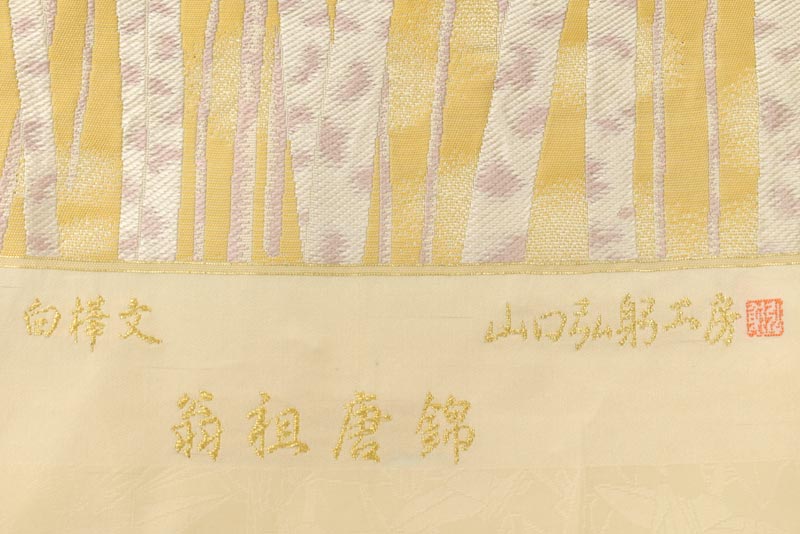 白樺文
山口弘躬工房
翁祖唐錦